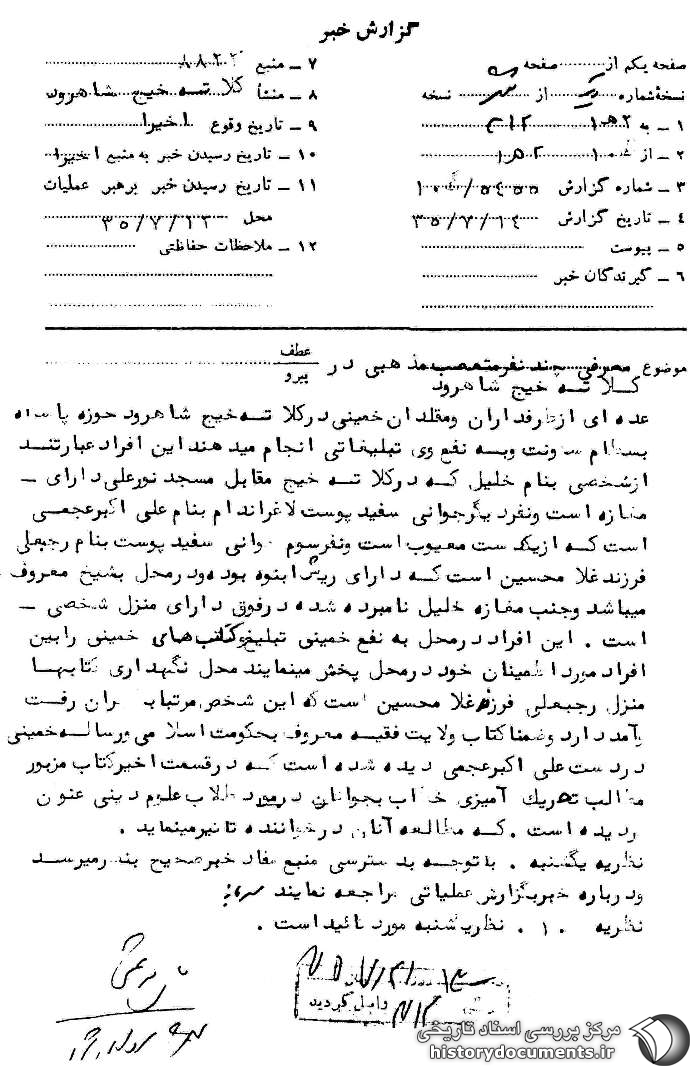 گزارش خبر
صفحه یکم از صفحه
نسخه شماره از نسخه
۱ ـ به ۳۱۲
۲ ـ از
۳ ـ شماره گزارش
۴ ـ تاریخ گزارش ۳۵/۷/۱۴
۵ ـ پیوست
۶ ـ گیرندگان خبر
۷ ـ منبع
۸ ـ منشأ کلاته خیج شاهرود
۹ ـ تاریخ وقوع اخیرا
۱۰ ـ تاریخ رسیدن خبر به منبع اخیرا
۱۱ ـ تاریخ رسیدن خبر برهبر عملیات
محل ۳۵/۷/۱۳
۱۲ ـ ملاحظات حفاظتی
موضوع معرفی چند نفر متعصب مذهبی در
عطف
پیرو
کلاته خیج شاهرود
عده ای ازطرفداران ومقلدان خمینی درکلاته خیج شاهرود حوزه پاسگاه
بسطام سکونت وبه نفع وی تبلیغاتی انجام میدهند این افراد عبارتند
ازشخصی بنام خلیل که درکلاته خیج مقابل مسجد نورعلی دارای ـ
مغازه است ونفردیگرجوانی سفید پوست لاغراندام بنام علی اکبرعجمی
است که ازیکدست معیوب است ونفرسوم جوانی سفید پوست بنام رجبعلی
فرزند غلامحسین است که دارای ریش انبوه بوده ودرمحل بشیخ معروف
میباشد وجنب مغازه خلیل نامبرده شده درفوق دارای منزل شخصی ـ
است . این افراد درمحل به نفع خمینی تبلیغ وکتب های خمینی رابین
افراد مورد اطمینان خود درمحل پخش مینمایند محل نگهداری کتابها
منزل رجبعلی فرزند غلامحسین است که این شخص مرتبا به تهران رفت
وآمد دارد وضمنا کتاب ولایت فقیه معروف بحکومت اسلامی ورساله خمینی
دردست علی اکبرعجمی دیده شده است که درقسمت اخیرکتاب مزبور
مطالب تحریک آمیزی خطاب بجوانان درمورد طلاب علوم دینی عنوان
گردیده است . که مطالعه آنان درخواننده تاثیرمینماید .
نظریه یکشنبه . باتوجه بدسترسی منبع مفاد خبرصحیح بنظرمیرسد
ودرباره خبربگزارش عملیاتی مراجعه نمایند
نظریه ۱۰ . نظریه شنبه مورد تائید است .
واصل گردید
مرکز بررسی اسناد تاریخی
historydocuments.ir